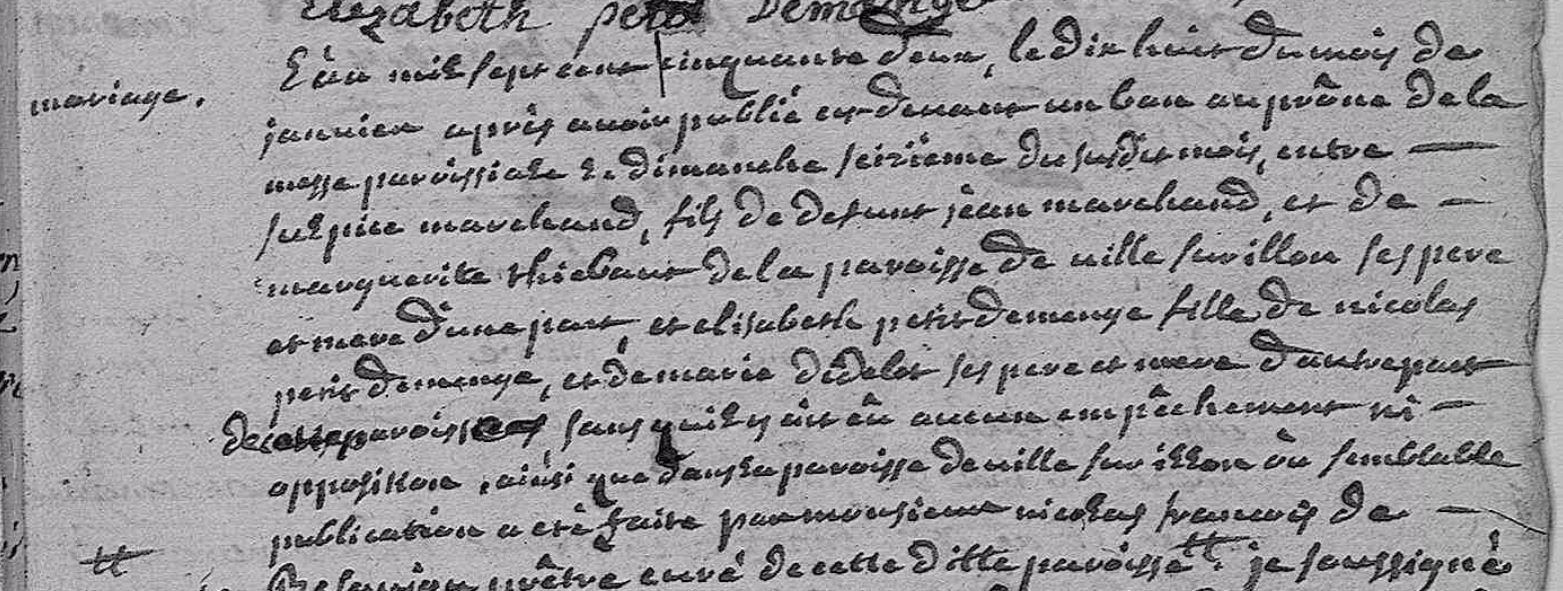 Elizabeth petit Demange
mariage.
L'an mil sept cent cinquante deux, le dix huit du mois de
janvier après avoir publié cy-devant un ban au prône de la
messe paroissiale le dimanche seizieme du susdit mois, entre
sulpice marchand, fils de defunt jean marchand, et de
marguerite thiebaut de la paroisse de ville sur illon ses pere
et mere d'une part, et elisabeth petit demenge fille de nicolas
petit demenge, et de marie didelot ses pere et mere d'autre part
de cette paroisse sans qu'il y ait eû aucun empêchement ni
opposition, ainsi que dans la paroisse de ville sur illon où semblable
publication a eté faite par monsieur nicolas francois de
prêtre curé de cette ditte paroisse tt. je soussigné
tt